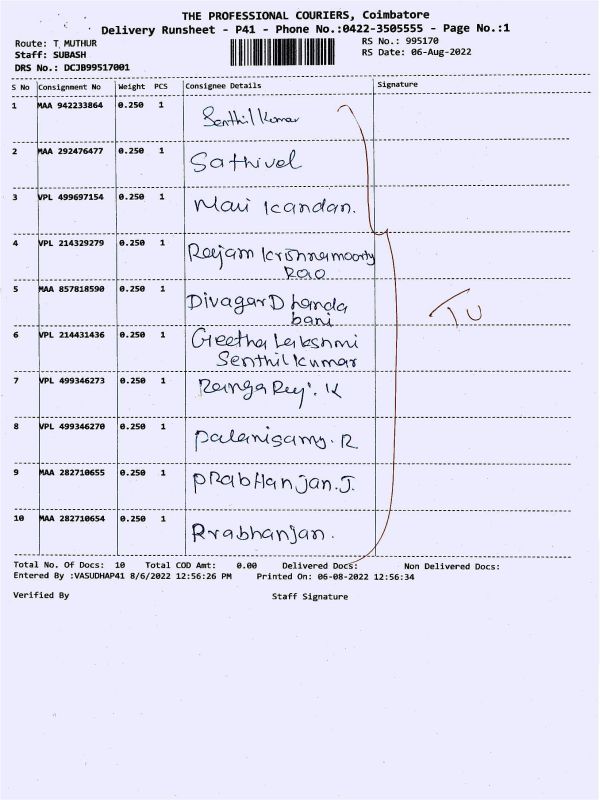 THE PROFESSIONAL COURIERS, Coimbatore
Delivery Runsheet - P41 - Phone No.:0422-3505555 - Page No.:1
Route: T MUTHUR
RS No.: 995170
Staff: SUBASH
RS Date: 06-Aug-2022
DRS No.: DCJB99517001
S No Consignment No Weight PCS Consignee Details Signature
1 MAA 942233864 0.250 1 Senthil Kumar
2 MAA 292476477 0.250 1 Sathivel
3 VPL 499697154 0.250 1 Mari Kandan.
4 VPL 214329279 0.250 1 Rajam Krishnamoorty
Rao
5 MAA 857818590 0.250 1 Divagar Dhanda
bani
6 VPL 214431436 0.250 1 Geetha Lakshmi
Senthil Kumar
7 VPL 499346273 0.250 1 Ranga Raj. K
8 VPL 499346270 0.250 1 Palanisamy. R
9 MAA 282710655 0.250 1 PRabHanjan.J.
10 MAA 282710654 0.250 1 Prabhanjan.
TU
Total No. Of Docs: 10 Total COD Amt: 0.00 Delivered Docs: Non Delivered Docs:
Entered By :VASUDHAP41 8/6/2022 12:56:26 PM Printed On: 06-08-2022 12:56:34
Verified By Staff Signature